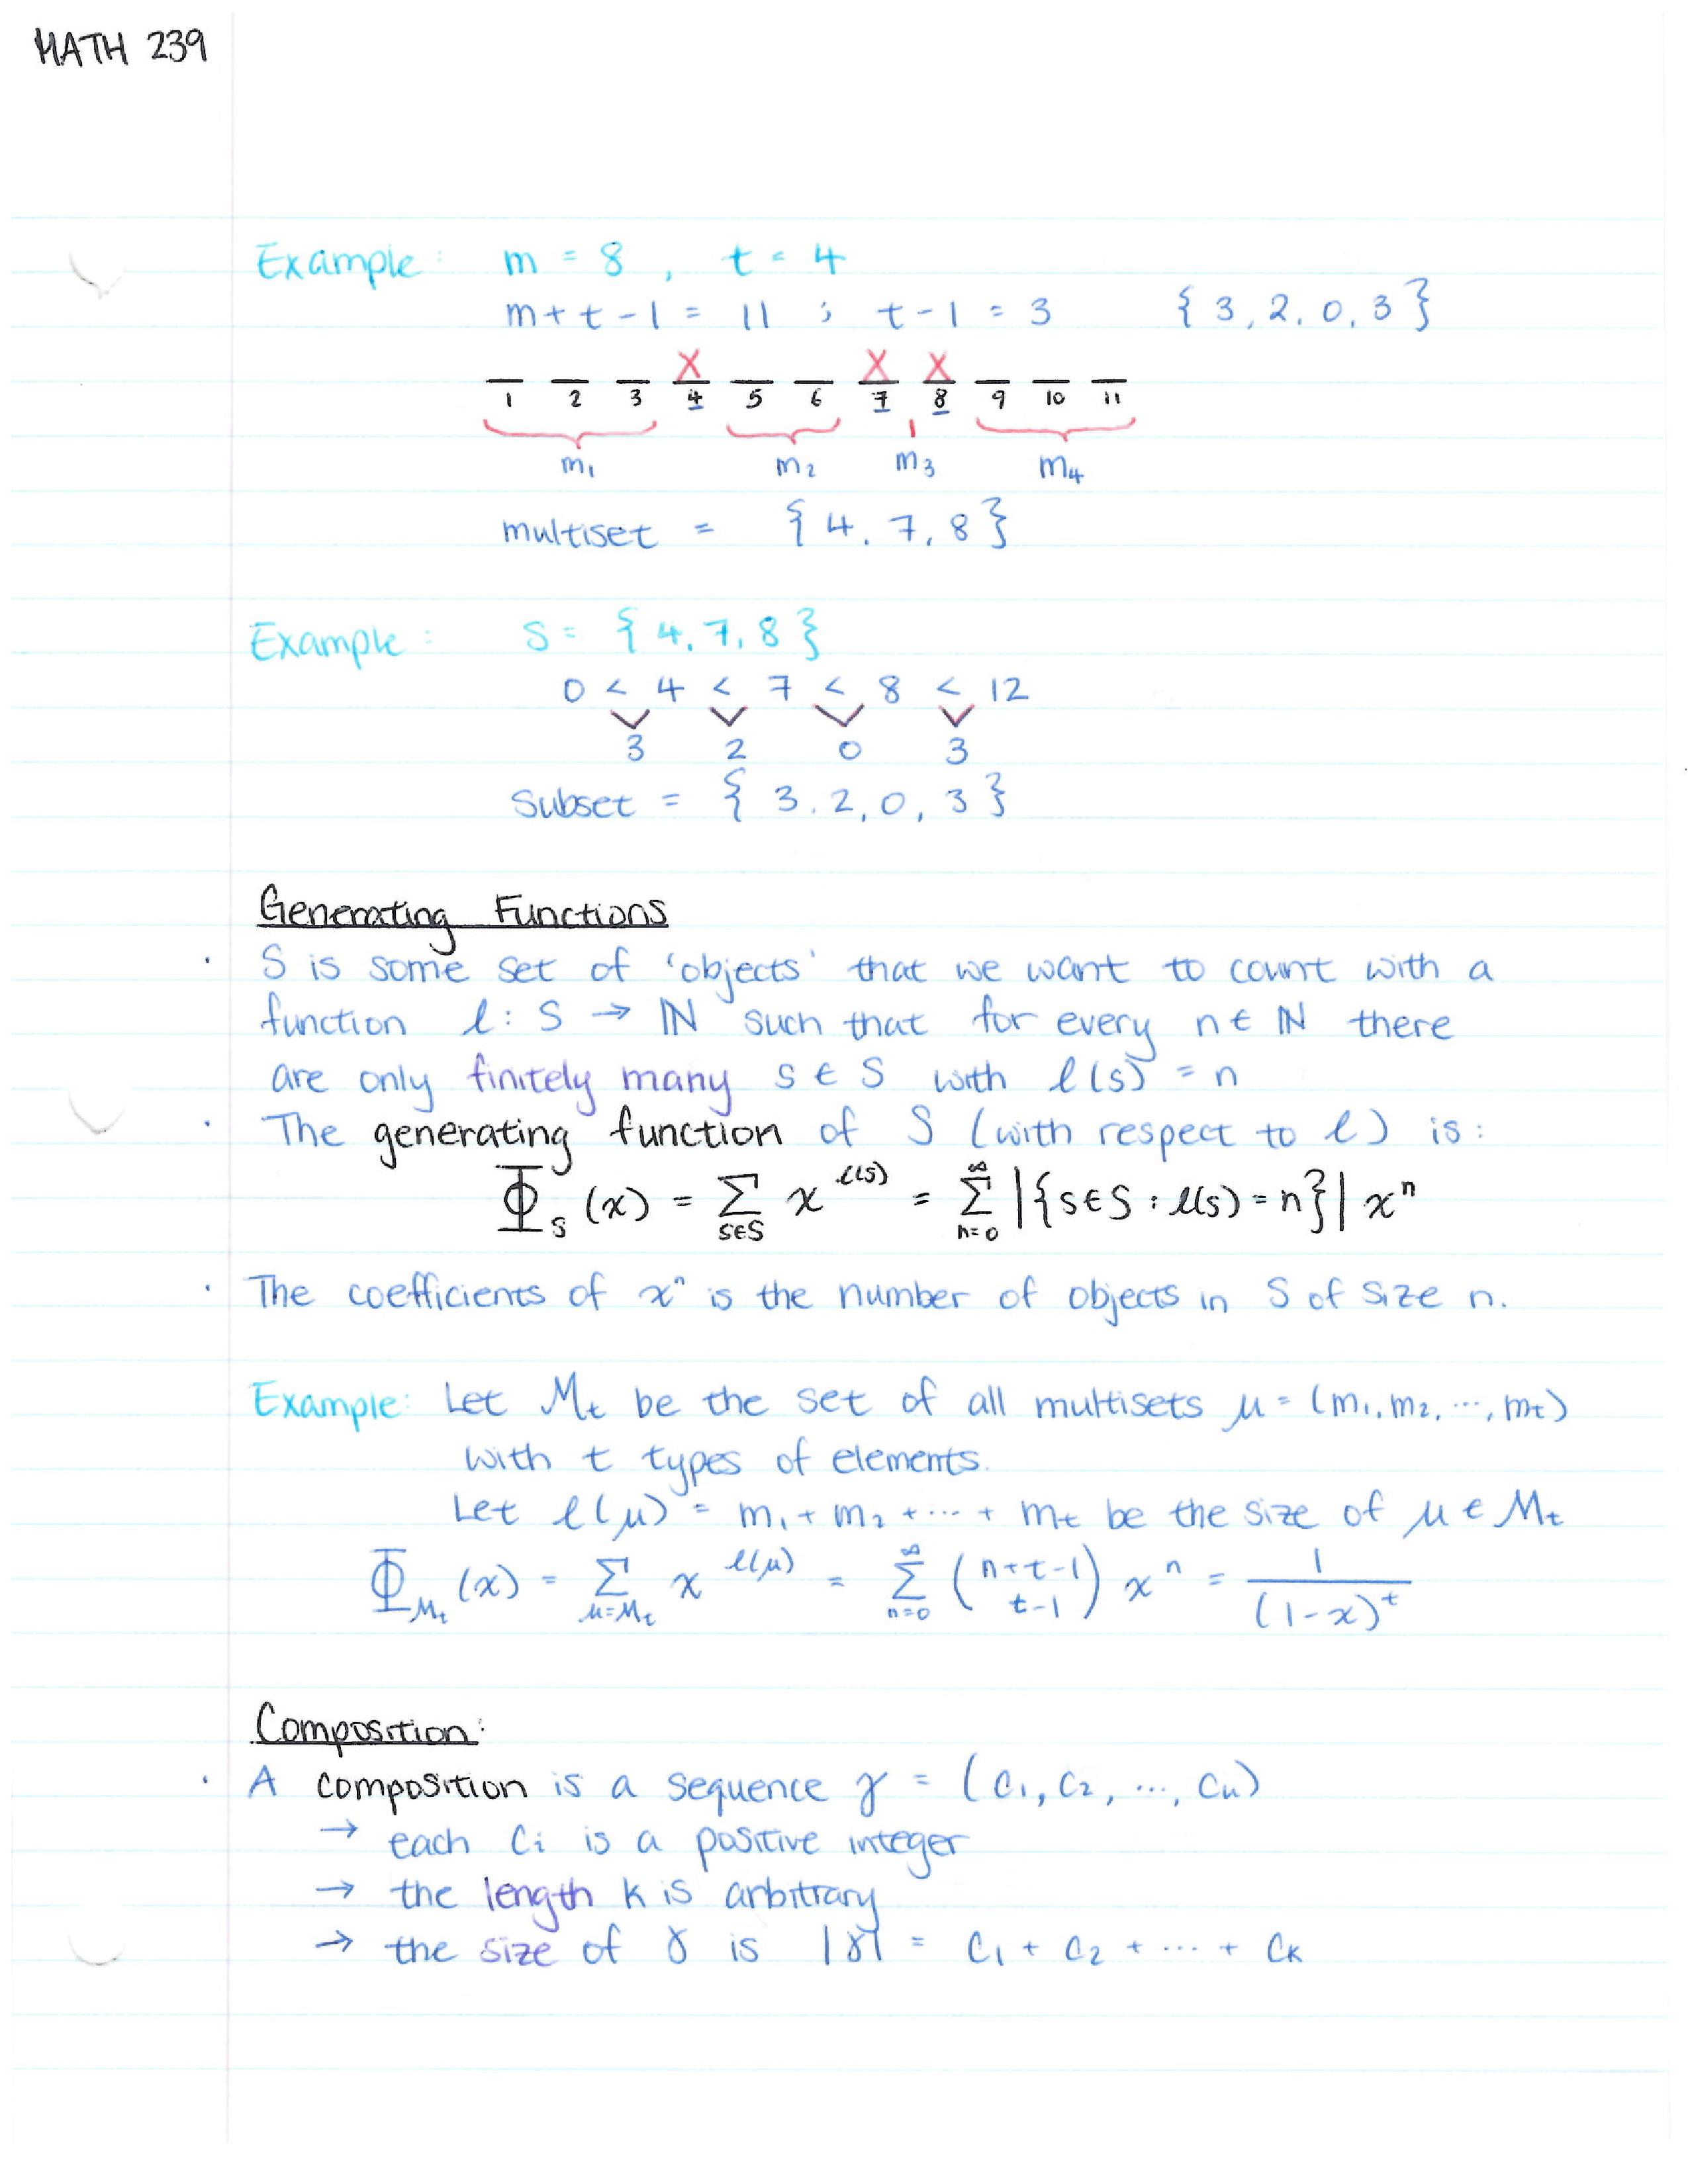 MATH 239
Example: m = 8, t = 4
m+t-1 = 11 ; t-1 = 3 {3, 2, 0, 3}
X X X
1 2 3 4 5 6 7 8 9 10 11
m₁ m₂ m₃ m₄
multiset = {4, 7, 8}
Example: S = {4, 7, 8}
0 < 4 < 7 < 8 < 12
3 2 0 3
Subset = {3, 2, 0, 3}
Generating Functions
· S is some set of 'objects' that we want to count with a
function l: S → ℕ such that for every n ∈ ℕ there
are only finitely many s ∈ S with l(s) = n
· The generating function of S (with respect to l) is:
Φ_S (x) = Σ_{s∈S} x^{l(s)} = Σ_{n=0}^∞ |{s∈S : l(s) = n}| xⁿ
· The coefficients of xⁿ is the number of objects in S of size n.
Example: Let M_t be the set of all multisets μ = (m₁, m₂, ..., m_t)
with t types of elements.
Let l(μ) = m₁ + m₂ + ... + m_t be the size of μ ∈ M_t
Φ_{M_t} (x) = Σ_{μ=M_t} x^{l(μ)} = Σ_{n=0}^∞ (n+t-1 t-1) xⁿ = 1/(1-x)^t
Composition:
· A composition is a sequence γ = (c₁, c₂, ..., c_k)
→ each c_i is a positive integer
→ the length k is arbitrary
→ the size of γ is |γ| = c₁ + c₂ + ... + c_k